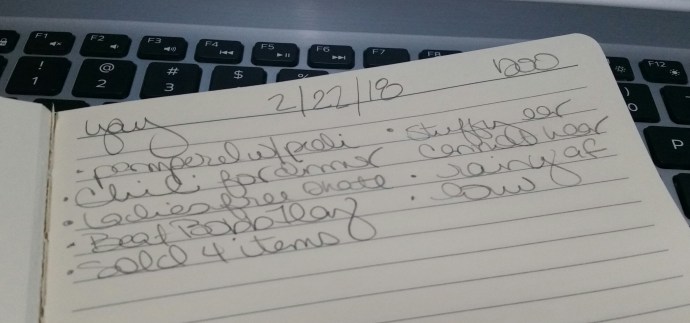 F1 F2 F3 F4 F5 F6 F7 F8 F12
! 1 @ 2 # 3 $ % P
yay 2/22/18 1200
· pampered w/ pedi
· chili for dinner
· Ladies free skate
· Beat Bobo Teaz
· Sold 4 items
· stuffy ear
cannot hear
· rainy af
· low